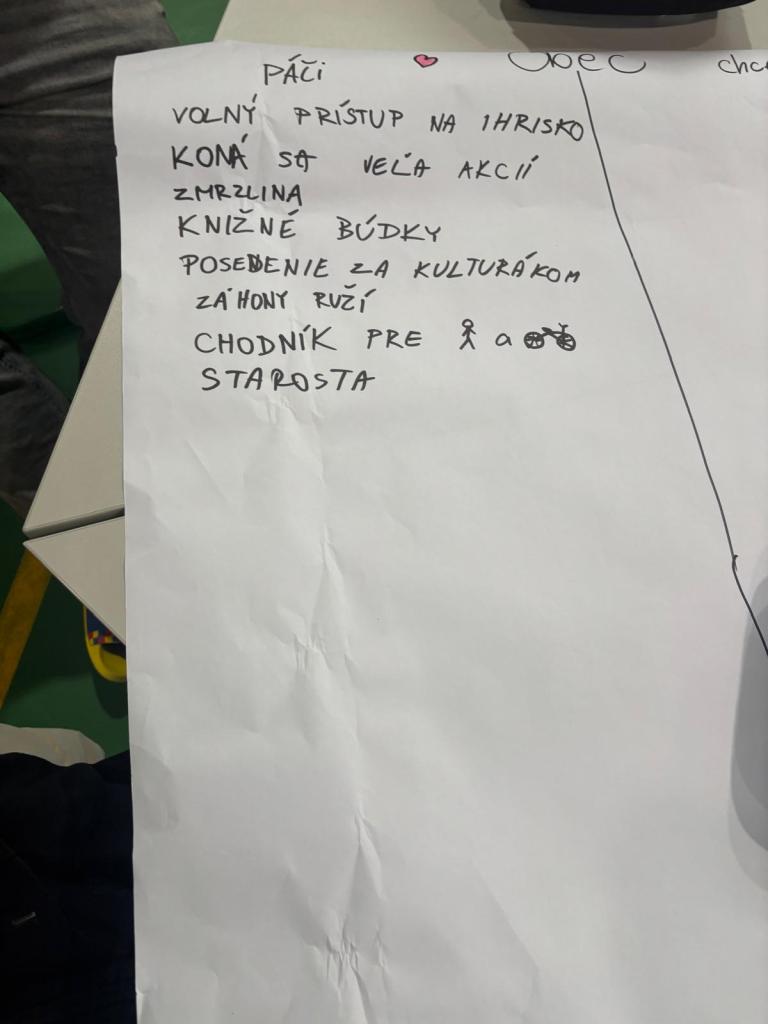 PÁČi Obec chc
VOLNÝ PRÍSTUP NA 1HRISKO
KONÁ SA VEĽA AKCIÍ
ZMRZLINA
KNIŽNÉ BÚDKY
POSEDENIE ZA KULTURÁKOM
ZÁHONY RUŽÍ
CHODNÍK PRE a
STAROSTA